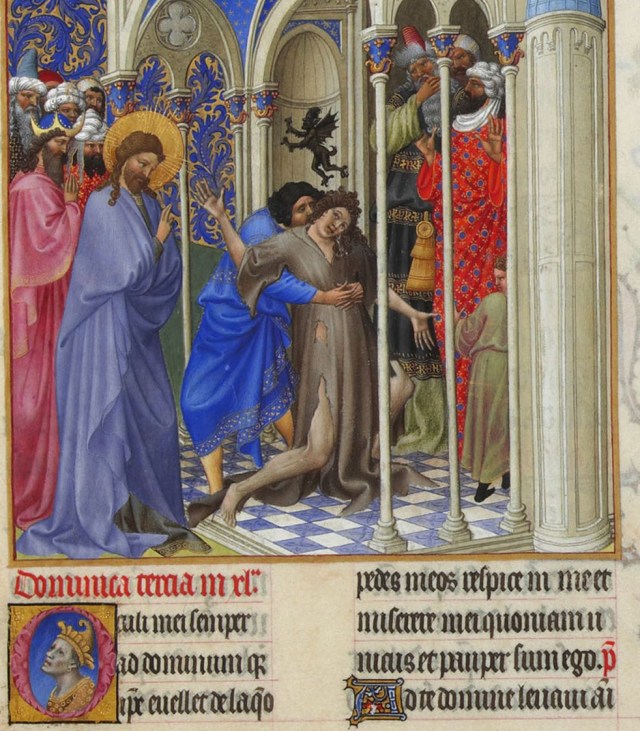 Dominica tercia in xl.
Oculi mei semper
ad dominum qꝛ
ipe euellet de laqo
pedes meos respice in me et
miserere mei quoniam u
nicus et pauper sum ego. p̄
Ad te domine leuaui ai